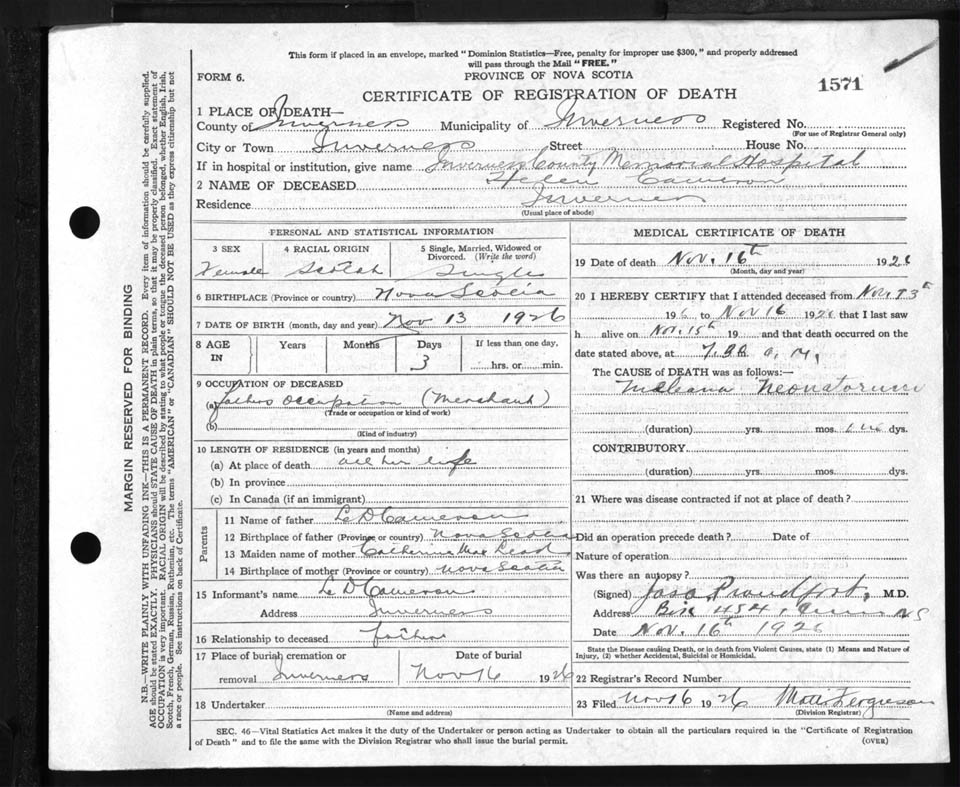 This form if placed in an envelope, marked "Dominion Statistics—Free, penalty for improper use $300," and properly addressed
will pass through the Mail "FREE."
FORM 6.
PROVINCE OF NOVA SCOTIA
1571
CERTIFICATE OF REGISTRATION OF DEATH
1 PLACE OF DEATH—
County of Inverness Municipality of Inverness Registered No.
(For use of Registrar General only)
City or Town Inverness Street House No.
If in hospital or institution, give name Inverness County Memorial Hospital
2 NAME OF DECEASED Helen Cameron
Residence Inverness
(Usual place of abode)
PERSONAL AND STATISTICAL INFORMATION
3 SEX 4 RACIAL ORIGIN 5 Single, Married, Widowed or
Divorced. (Write the word)
Female Scotch Single
6 BIRTHPLACE (Province or country) Nova Scotia
7 DATE OF BIRTH (month, day and year) Nov 13 1926
8 AGE Years Months Days If less than one day,
IN 3 hrs. or min.
9 OCCUPATION OF DECEASED
(a) fathers occupation (Merchant)
(Trade or occupation or kind of work)
(b)
(Kind of industry)
10 LENGTH OF RESIDENCE (in years and months)
(a) At place of death all her life
(b) In province
(c) In Canada (if an immigrant)
Parents
11 Name of father L D Cameron
12 Birthplace of father (Province or country) Nova Scotia
13 Maiden name of mother Catherine Mac Lead
14 Birthplace of mother (Province or country) Nova Scotia
15 Informant's name L D Cameron
Address Inverness
16 Relationship to deceased father
17 Place of burial, cremation or Date of burial
removal Inverness Nov 16 1926
18 Undertaker
(Name and address)
MEDICAL CERTIFICATE OF DEATH
19 Date of death Nov. 16th 1926
(Month, day and year)
20 I HEREBY CERTIFY that I attended deceased from Nov. 13th
1926 to Nov 16 1926 that I last saw
h alive on Nov. 15th 19 and that death occurred on
date stated above, at a. M.
The CAUSE OF DEATH was as follows:—
Meleana Neonatorum
(duration) yrs. mos. dys.
CONTRIBUTORY.
(duration) yrs. mos. dys.
21 Where was disease contracted if not at place of death?
Did an operation precede death? Date of
Nature of operation
Was there an autopsy?
(Signed) Jas. Proudfoot, M.D.
Address Box 454, N S
Date Nov. 16th 1926
State the Disease causing Death, or in death from Violent Causes, state (1) Means and Nature of
Injury, (2) whether Accidental, Suicidal or Homicidal.
22 Registrar's Record Number
23 Filed Nov 16 1926 Ferguson
(Division Registrar)
SEC. 46—Vital Statistics Act makes it the duty of the Undertaker or person acting as Undertaker to obtain all the particulars required in the "Certificate of Registration
of Death" and to file the same with the Division Registrar who shall issue the burial permit.
(OVER)
MARGIN RESERVED FOR BINDING
N.B.—WRITE PLAINLY WITH UNFADING INK—THIS IS A PERMANENT RECORD. Every item of information should be carefully supplied.
AGE should be stated EXACTLY. PHYSICIANS should STATE CAUSE OF DEATH in plain terms, so that it may be properly classified. Exact statement of
OCCUPATION is very important. RACIAL ORIGIN will be described by stating to what people or tongue the deceased person belonged, whether English, Irish,
Scotch, French, German, Russian, Ruthenian, etc. The terms "AMERICAN" or "CANADIAN" SHOULD NOT BE USED as they express citizenship but not
a race or people. See instructions on back of Certificate.